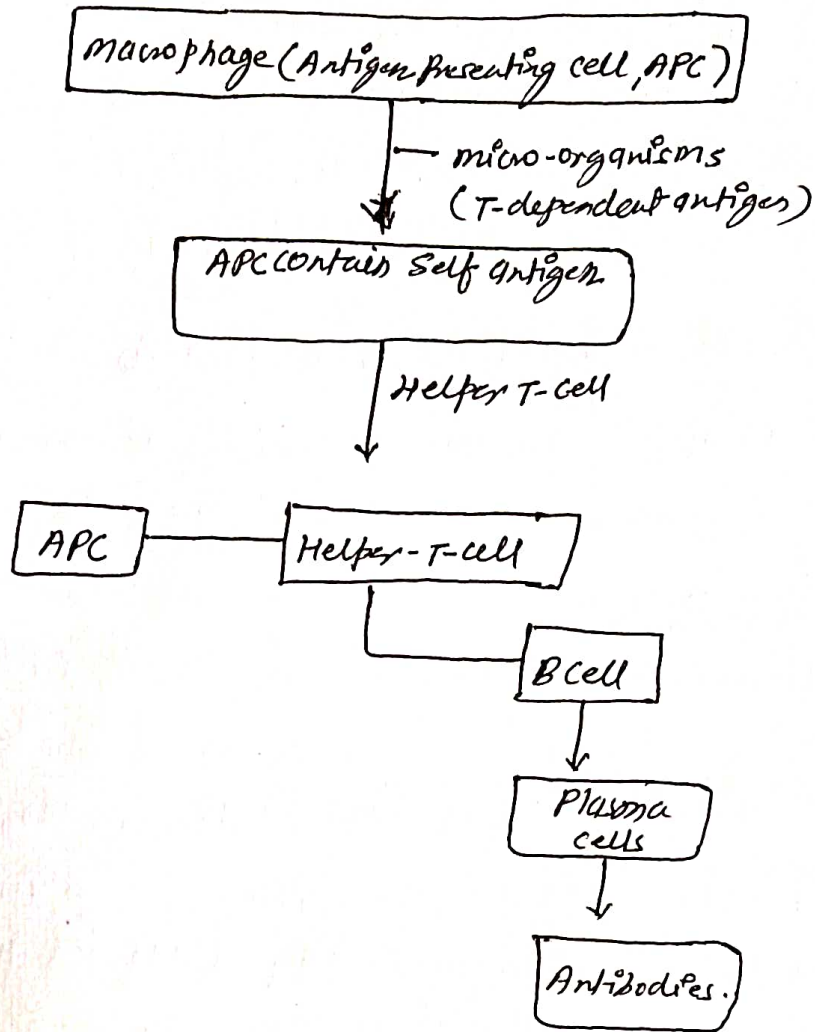 Macrophage (Antigen Presenting cell, APC)
micro-organisms
(T-dependent antigen)
APC contain Self antigen
Helper T-cell
APC
Helper-T-cell
B Cell
Plasma
cells
Antibodies.